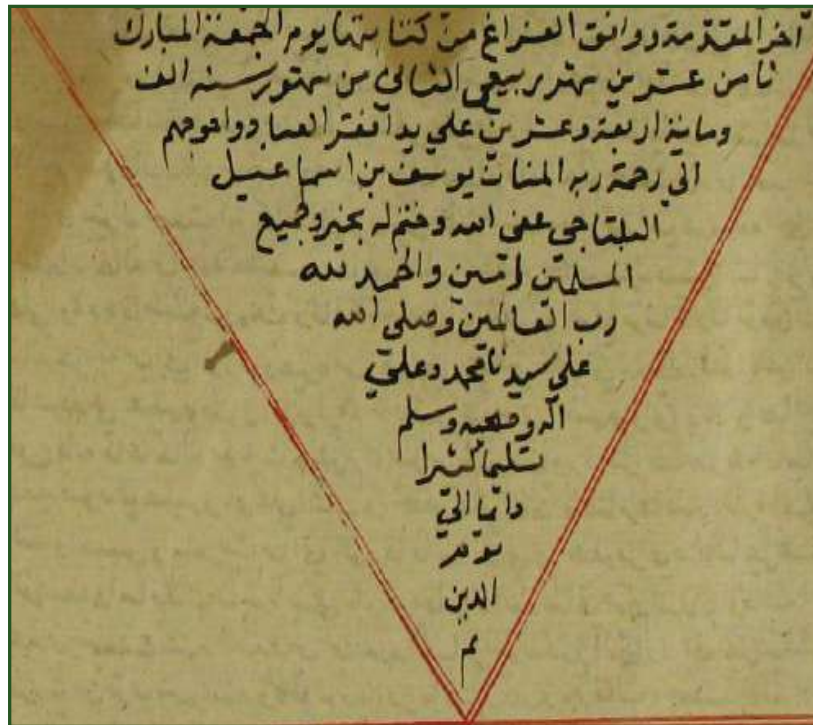 آخر المقدمة ووافق الفراغ من كتابتها يوم الجمعة المبارك
ثامن عشرين شهر ربيع الثاني من شهور سنة الف
وماية اربعة وعشرين علي يد افقر العباد واحوجهم
الي رحمة ربه المنان يوسف بن اسماعيل
البلتاجي عفى الله وختم له بخير وجميع
المسلمين امين والحمد لله
رب العالمين وصلى الله
علي سيدنا محمد وعلي
اله وصحبه وسلم
تسليما كثيرا
دائما الي
يوم
الدين
تم